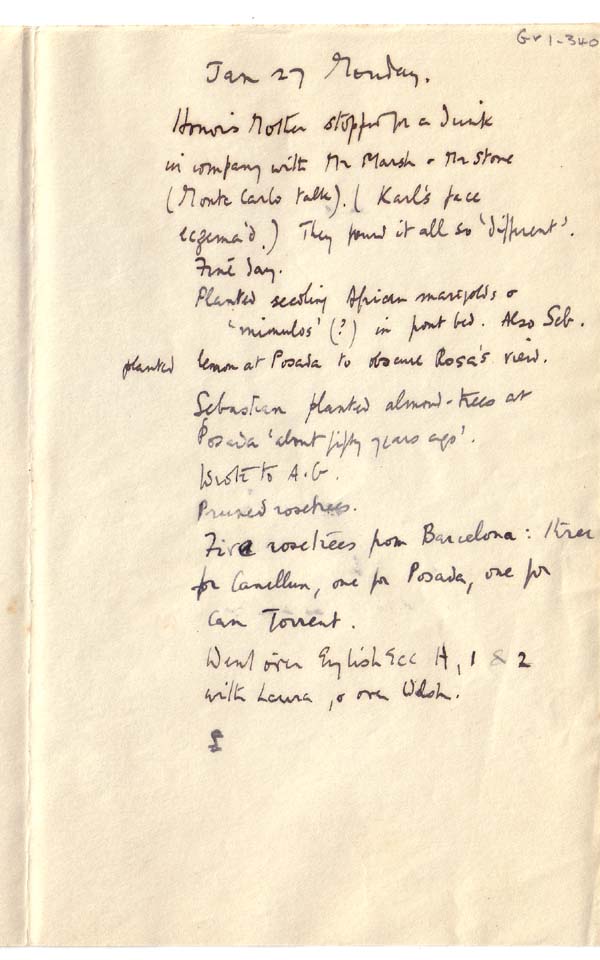 Gr 1-340
Jan 27 Monday.
Honor's Mother stopped for a drink
in company with Mr Marsh & Mr Stone
(Monte Carlo talk). (Karl's face
eczema'd.) They found it all so 'different'.
Fine day.
Planted seedling African marigolds &
'mimulos' (?) in front bed. Also Seb.
planted lemon at Posada to obscure Rosa's view.
Sebastian planted almond-trees at
Posada 'about fifty years ago'.
Wrote to A.G.
Pruned rosetrees.
Five rosetrees from Barcelona: three
for Canellun, one for Posada, one for
Can Torrent.
Went over English Ecc H, 1 & 2
with Laura, & over Welsh.